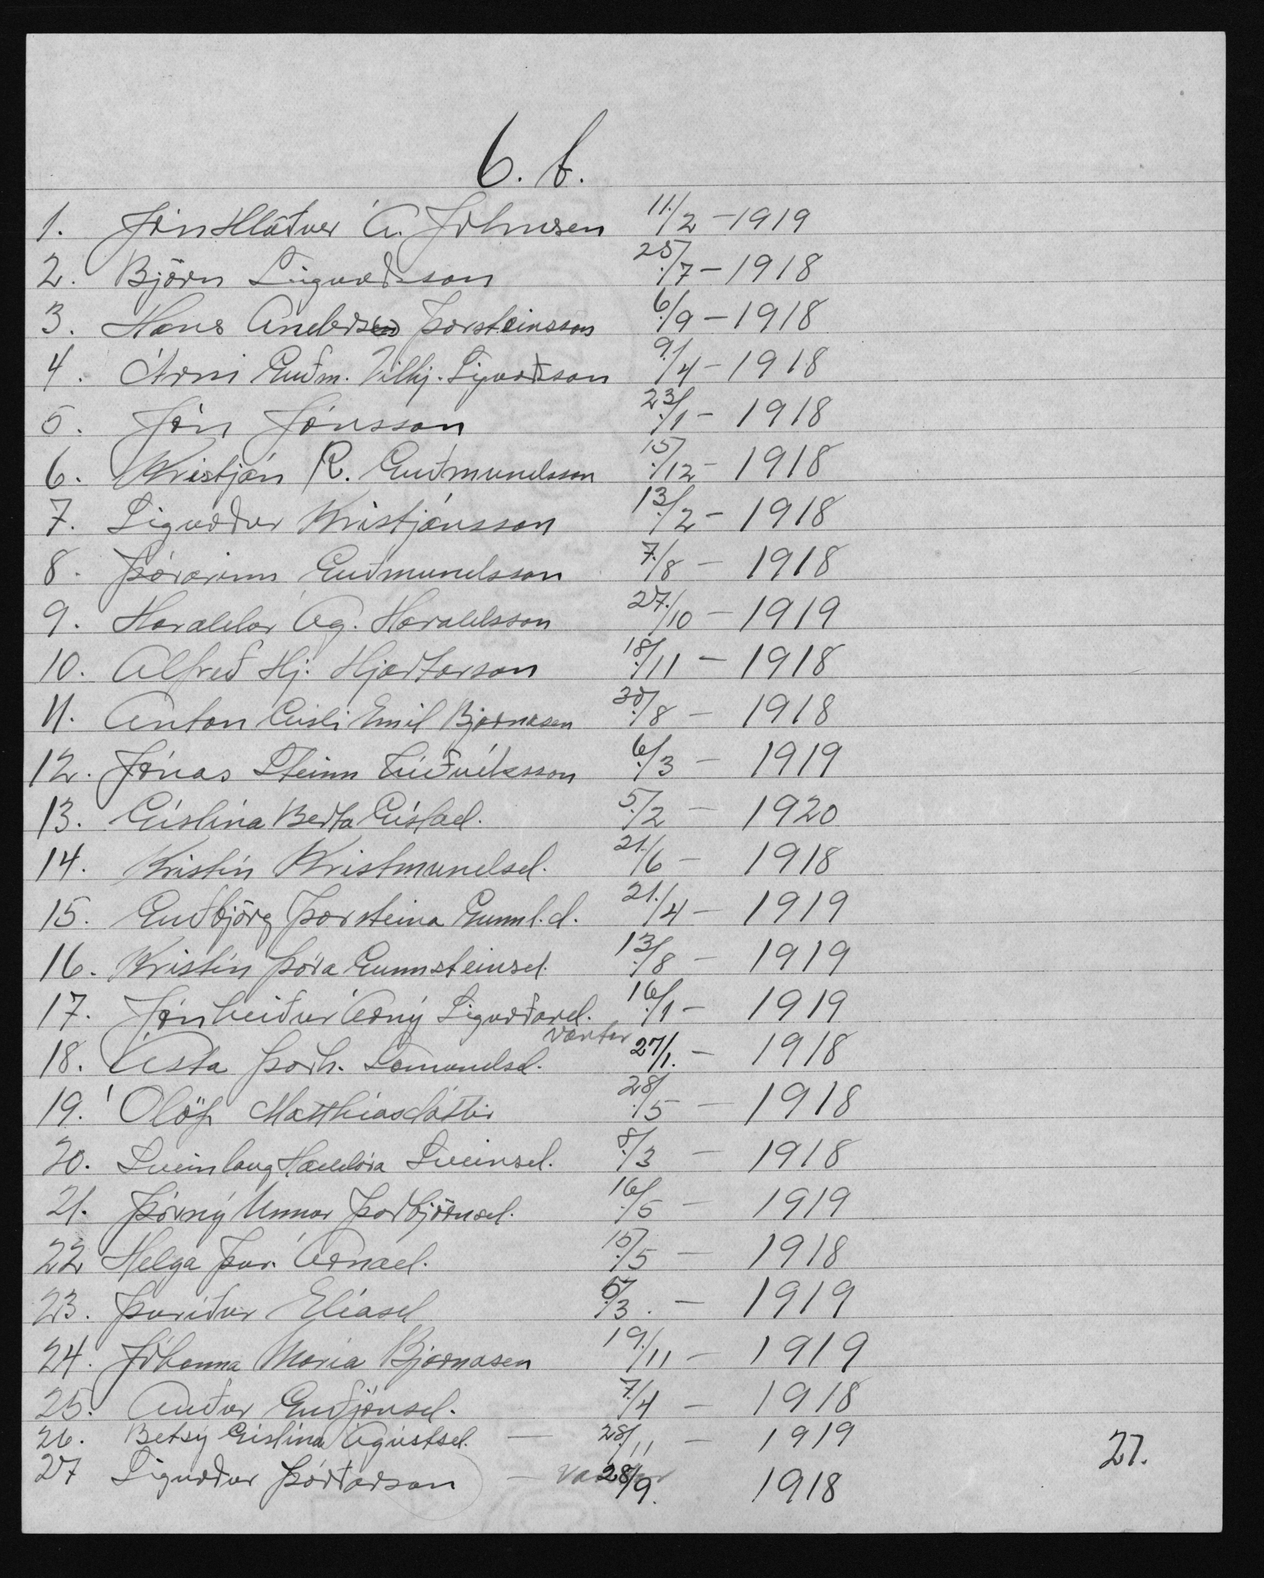 6. b.
1. Jón Hlöðver Á. Johnsen 11/2 - 1919
2. Björn Sigurðsson 25/7 - 1918
3. Hans Andersen Þorsteinsson 6/9 - 1918
4. Árni Guðm. Vilhj. Sigurðsson 9/4 - 1918
5. Jón Jónsson 23/1 - 1918
6. Kristján R. Guðmundsson 15/12 - 1918
7. Sigurður Kristjánsson 13/2 - 1918
8. Þórarinn Guðmundsson 7/8 - 1918
9. Haraldur Ág. Haraldsson 27/10 - 1919
10. Alfreð Hj. Hjartarson 18/11 - 1918
11. Anton Gísli Emil Bjarnasen 30/8 - 1918
12. Jónas Steinn Lúðvíksson 6/3 - 1919
13. Gíslína Berta Gíslad. 5/2 - 1920
14. Kristín Kristmundsd. 21/6 - 1918
15. Guðbjörg Þorsteina Gunnl.d. 21/4 - 1919
16. Kristín Þóra Gunnsteinsd. 13/8 - 1919
17. Jónheiður Árný Sigurðard. 16/1 - 1919
vantar
18. Ásta Þorh. Sæmundsd. 27/1. - 1918
19. Ólöf Matthíasdóttir 28/5 - 1918
20. Sveinlaug Halldóra Sveinsd. 8/3 - 1918
21. Þórný Unnur Þorbjörnsd. 16/5 - 1919
22 Helga Þur. Árnad. 15/5 - 1918
23. Þuríður Elíasd 5/3. - 1919
24. Jóhanna María Bjarnasen 19/11 - 1919
25. Auður Guðjónsd. 7/4 - 1918
26. Betsy Gíslína Ágústsd. — 28/11 - 1919
27 Sigurður Þórðarson — vantar 28/9. 1918
27.